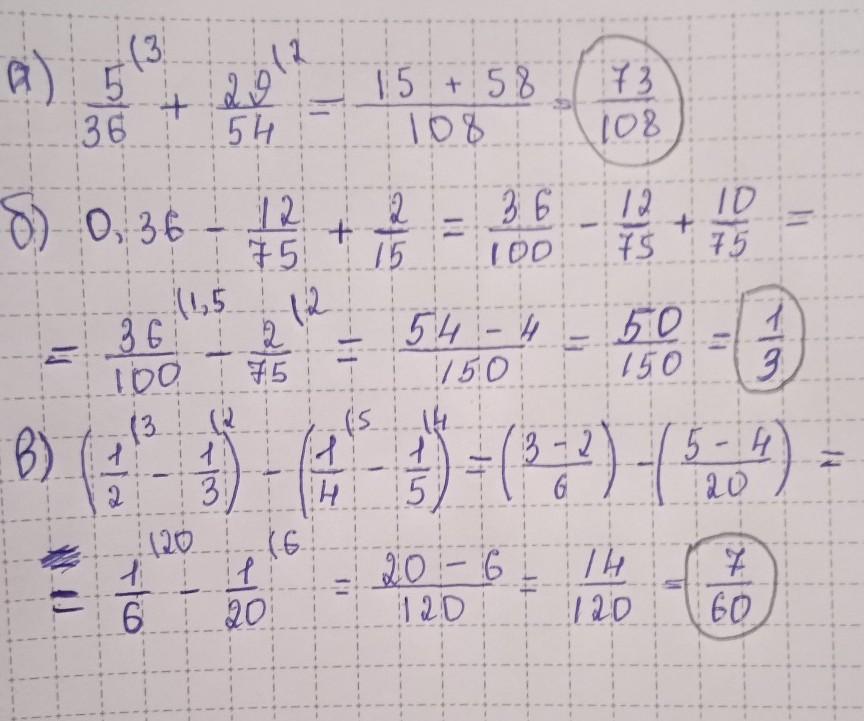 а) 5/36 (3 + 29/54 (2 = (15 + 58)/108 = 73/108
б) 0,36 - 12/75 + 2/15 = 36/100 - 12/75 + 10/75 =
= 36/100 (1,5 - 2/75 (2 = (54 - 4)/150 = 50/150 = 1/3
в) (1/2 (3 - 1/3 (2) - (1/4 (5 - 1/5 (4) = ((3 - 2)/6) - ((5 - 4)/20) =
= 1/6 (20 - 1/20 (6 = (20 - 6)/120 = 14/120 = 7/60